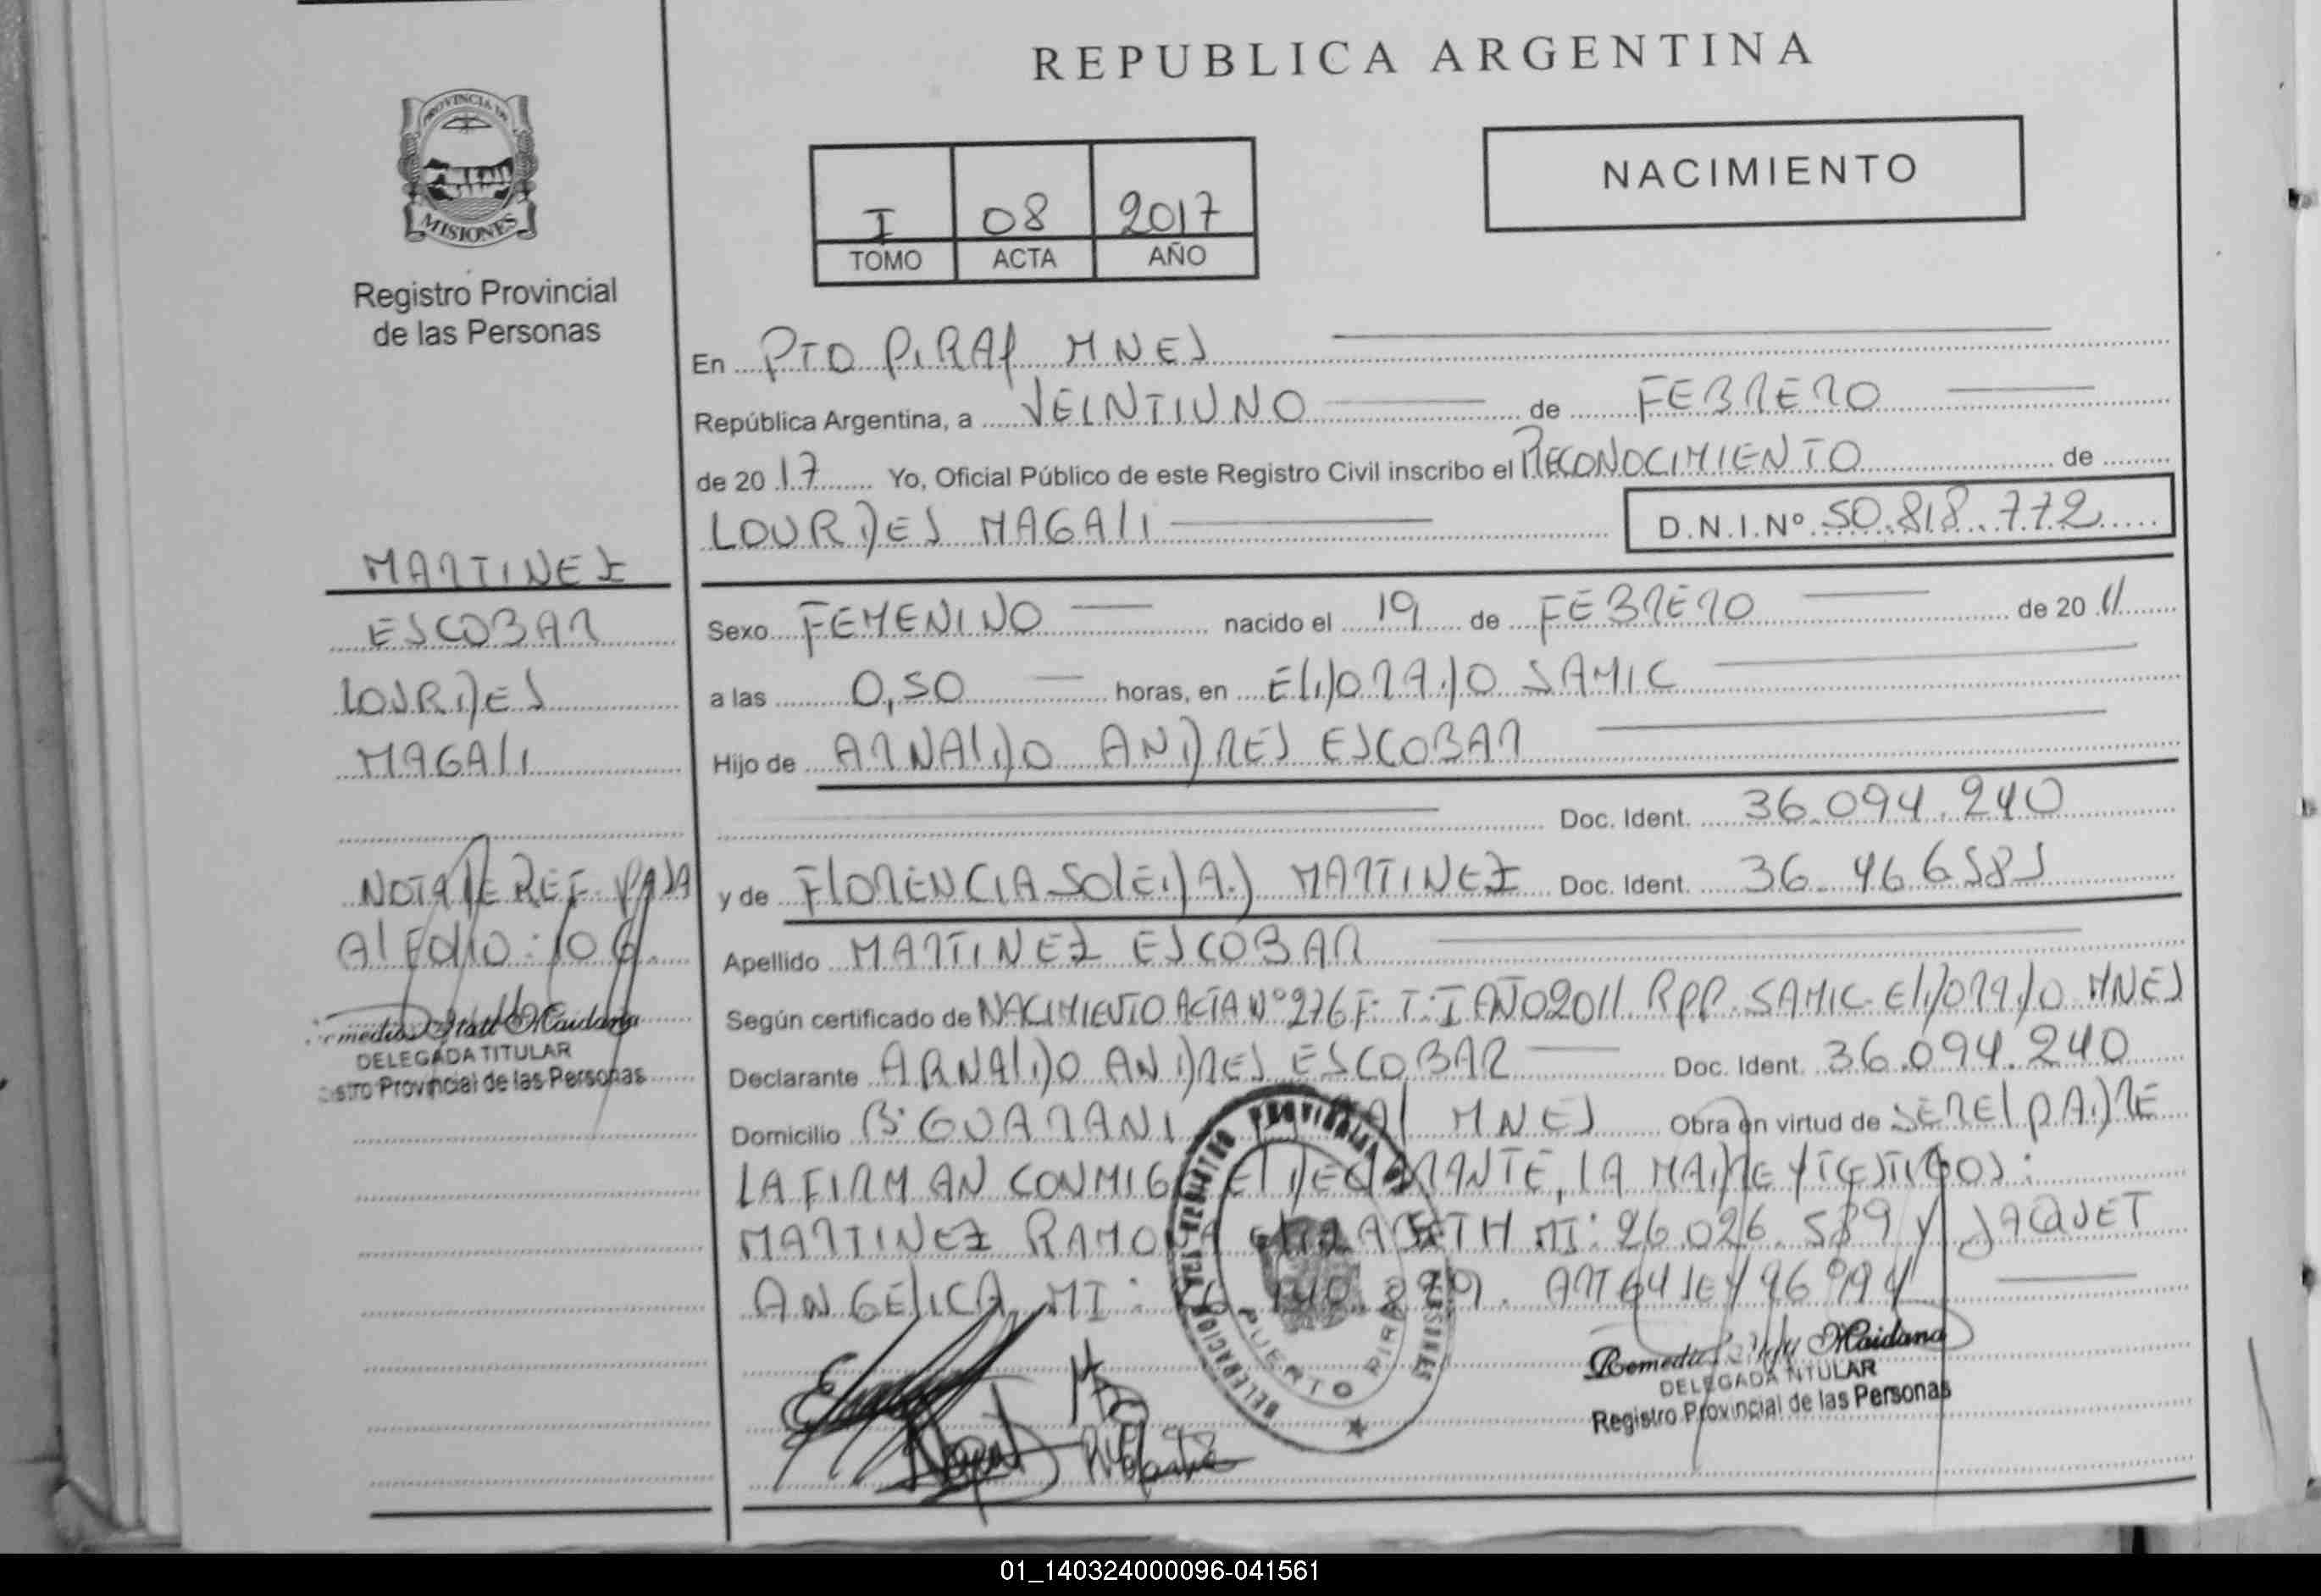 REPUBLICA ARGENTINA
PROVINCIA DE
MISIONES
Registro Provincial
de las Personas
NACIMIENTO
I 08 2017
TOMO ACTA AÑO
En PTO PIRAY MNES
República Argentina, a VEINTIUNO de FEBRERO
de 20 17 Yo, Oficial Público de este Registro Civil inscribo el RECONOCIMIENTO de
LOURDES MAGALI D.N.I.Nº 50.818.772
MARTINEZ
ESCOBAR
LOURDES
MAGALI
NOTA DE REF. PASA
Al FOLIO: 106.
Maidana
DELEGADA TITULAR
istro Provincial de las Personas
Sexo FEMENINO nacido el 19 de FEBRERO de 20 11
a las 0,50 horas, en ElDORADO SAMIC
Hijo de ARNALDO ANDRES ESCOBAR
Doc. Ident. 36.094.240
y de FlORENCIA SOLEDAD MARTINEZ Doc. Ident. 36.466585
Apellido MARTINEZ ESCOBAR
Según certificado de NACIMIENTO ACTA Nº 276 F: T: I AÑO 2011 RPP. SAMIC ElDORADO MNES
Declarante ARNALDO ANDRES ESCOBAR Doc. Ident. 36.094.240
Domicilio Bº GUARANI MNES Obra en virtud de SER El PADRE
LA FIRMAN CONMIGO El DECLARANTE, LA MADRE Y TESTIGOS:
MARTINEZ RAMONA ELIZABETH MI: 26.026.589 Y JAQUET
ANGELICA MI: ART 64 LEY
DELEGACION
PUERTO PIRAY
MISIONES
Maidana
DELEGADA TITULAR
Registro Provincial de las Personas
01_140324000096-041561